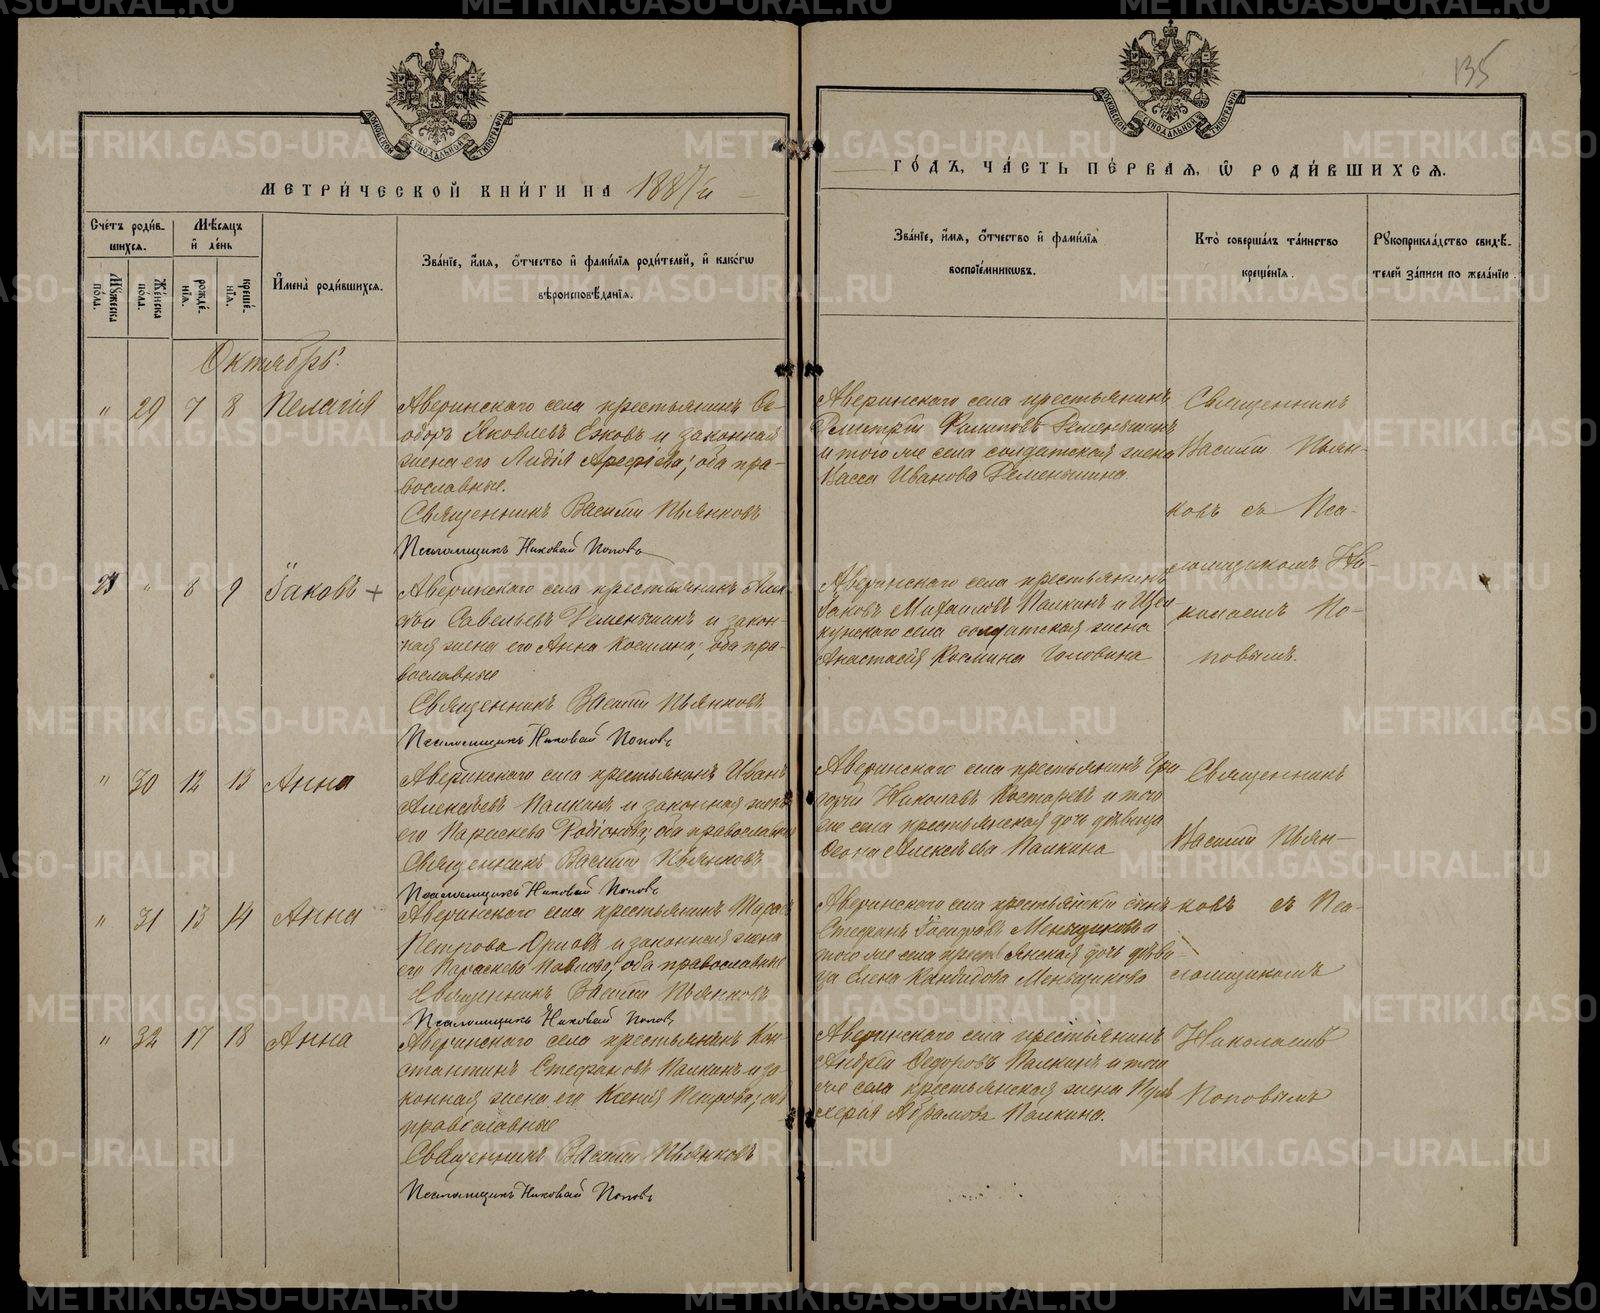 135
МЕТРИ́ЧЕСКОЙ КНИ́ГИ НА 1887й
ГО́ДЪ, ЧА́СТЬ ПЕ́РВАЯ, Ѡ РОДИ́ВШИХСѦ.
Сче́тъ роди́в-
шихся.
Му́жеска по́ла.
Же́нска по́ла.
Мѣ́сяцъ и де́нь
рожде́-нія.
креще́-нія.
И҆мена̀ роди́вшихся.
Зва́ніе, и҆́мя, ѻ҆́тчество и҆ фами́лія роди́телей, и҆ како́гѡ
вѣроисповѣ́данія.
Зва́ніе, и҆́мя, ѻ҆́тчество и҆ фами́лія
воспріе́мникωвъ.
Кто̀ соверша́лъ та́инство
креще́нія.
Рꙋкоприкла́дство свидѣ́-
телей за́писи по жела́нію.
Октябрь.
" 29 7 8 Пелагія
Аверинскаго села крестьянинъ Ѳе-
одоръ Яковлевъ Езковъ и законная
жена его Лидія Арефіева; оба пра-
вославные.
Священникъ Василій Пьянковъ
Псаломщикъ Николай Поповъ
Аверинскаго села крестьянинъ
Димитрій Филиповъ Деменьшинъ
и того же села солдатская жена
Васса Иванова Деменьшина.
Священникъ
Василій Пьян-
ковъ съ Пса-
ломщикомъ Ни-
колаемъ По-
повымъ.
" 8 9 Іаковъ +
Аверинскаго села крестьянинъ
Савельевъ Деменьшинъ и закон-
ная жена его Анна Космина; оба пра-
вославные
Священникъ Василій Пьянковъ
Псаломщикъ Николай Поповъ
Аверинскаго села крестьянинъ
Іаковъ Михаиловъ Палкинъ и
села солдатская жена
Анастасія Космина Головина
" 30 12 13 Анна
Аверинскаго села крестьянинъ Иванъ
Алексѣевъ Палкинъ и законная жена
его Параскева Родіонова; оба православные
Священникъ Василій Пьянковъ
Псаломщикъ Николай Поповъ
Аверинскаго села крестьянинъ Гри-
горій Николаевъ Костаревъ и того
же села крестьянская дочь дѣвица
Алексѣева Палкина
Священникъ
Василій Пьян-
ковъ съ Пса-
ломщикомъ
Николаемъ
Поповымъ
" 31 13 14 Анна
Аверинскаго села крестьянинъ
Петрова Орловъ и законная жена
его Параскева Павлова; оба православные
Священникъ Василій Пьянковъ
Псаломщикъ Николай Поповъ
Аверинскаго села крестьянскій сынъ
Стефанъ Меньщиковъ и
того же села крестьянская дочь дѣви-
ца Елена Кандидова Меньщикова
" 32 17 18 Анна
Аверинскаго села крестьянинъ Кон-
стантинъ Стефановъ Палкинъ и за-
конная жена его Ксенія Петрова; оба
православные
Священникъ Василій Пьянковъ
Псаломщикъ Николай Поповъ
Аверинскаго села крестьянинъ
Андрей Ѳедоровъ Палкинъ и того
же села крестьянская жена Пуль-
херія Абрамова Палкина.
METRIKI.GASO-URAL.RU